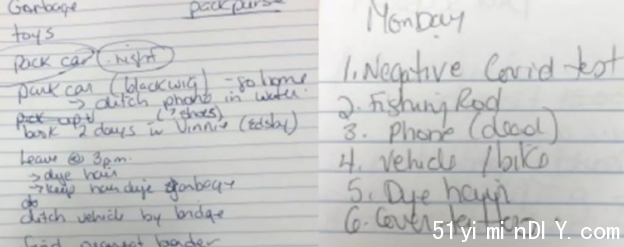 Garbage
pack purse
toys
pack car night
park car (black wig) - go home
→ ditch phone in water
pack apt (→ shoes)
book 2 days in Vinnie (Edsby)
Leave @ 3pm.
→ dye hair
→ keep hair dye garbage
ditch vehicle by bridge
find nearest border
Monday
1. Negative Covid test
2. Fishing Rod
3. Phone (dead)
4. Vehicle / bike
5. Dye hair
6. Cover
51yiminDIY.com